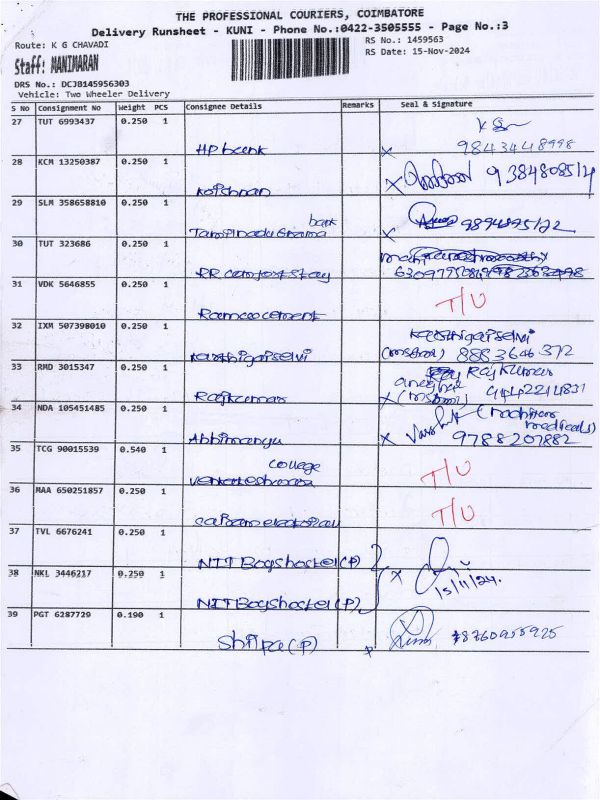 THE PROFESSIONAL COURIERS, COIMBATORE
Delivery Runsheet - KUNI - Phone No.:0422-3505555 - Page No.:3
Route: K G CHAVADI
RS No.: 1459563
RS Date: 15-Nov-2024
Staff: MANIMARAN
DRS No.: DCJB145956303
Vehicle: Two Wheeler Delivery
S No Consignment No Weight PCS Consignee Details Remarks Seal & Signature
27 TUT 6993437 0.250 1
HP bank x 9843448998
28 KCM 13250387 0.250 1
Krishnan x 9384808514
29 SLM 358658810 0.250 1
bank
Tamilnadu Grama x 9894895122
30 TUT 323686 0.250 1
RR comfort stay
31 VDK 5646855 0.250 1
Ramco cement T/U
32 IXM 507398010 0.250 1
Karthigaiselvi
Karthigaiselvi 8883646372
33 RMD 3015347 0.250 1
Rajkumar
Rajkumar x 9442214831
34 NDA 105451485 0.250 1
medicals)
Abhimanyu x 9788207882
35 TCG 90015539 0.540 1
college
T/U
36 MAA 650251857 0.250 1
T/U
37 TVL 6676241 0.250 1
NIT Boys hostel (P)
38 NKL 3446217 0.250 1
x 15/11/24.
NIT Boys hostel (P)
39 PGT 6287729 0.190 1
Shilpa (P) x 8760955925